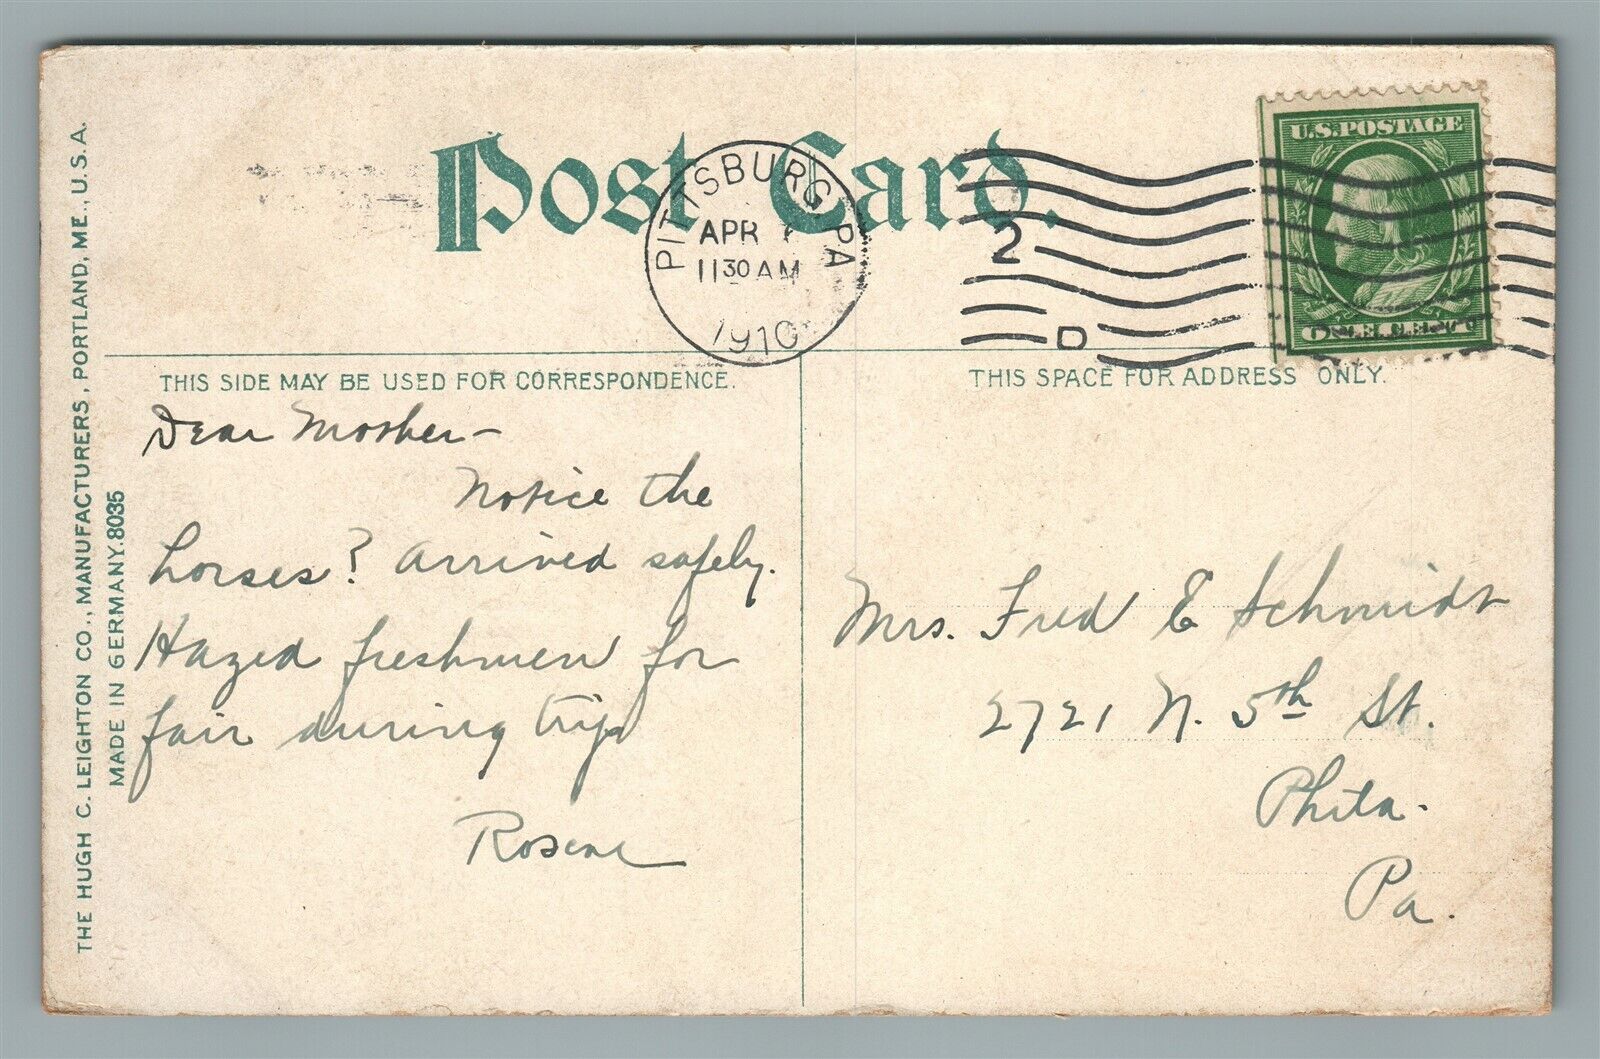 Post Card.
PITTSBURG, PA
APR
11 30 AM
1910
2
D
U.S. POSTAGE
ONE CENT
THIS SIDE MAY BE USED FOR CORRESPONDENCE.
THIS SPACE FOR ADDRESS ONLY.
THE HUGH C. LEIGHTON CO., MANUFACTURERS, PORTLAND, ME., U.S.A.
MADE IN GERMANY. 8035
Dear Mother—
Notice the
horses? Arrived safely.
Hazed freshmen for
fair during trip
Mrs. Fred E Schmidt
2721 N. 5th St.
Phila.
Pa.